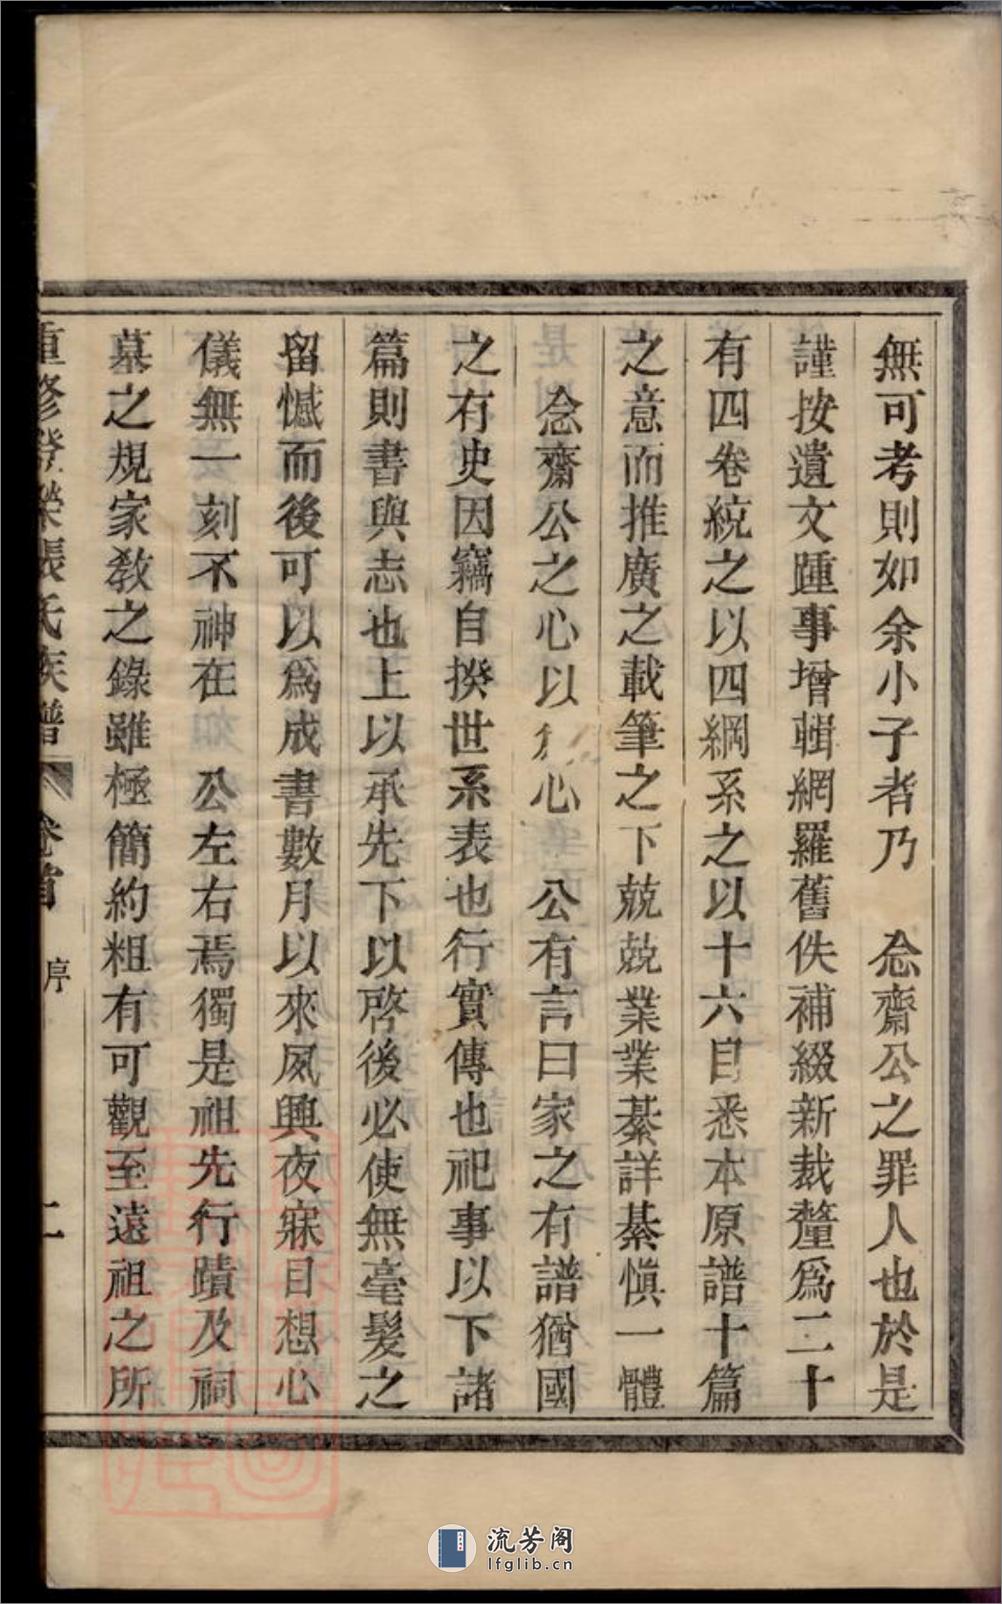 無可考則如余小子者乃　惗齋公之罪人也於是
謹按遺文踵事增輯網羅舊佚補綴新裁釐爲二十
有四卷統之以四綱系之以十六目悉本原譜十篇
之意而推廣之載筆之下兢兢業業綦詳綦愼一體
惗齋公之心以爲心　公有言曰家之有譜猶國
之有史因竊自揆世系表也行實傳也祀事以下諸
篇則書與志也上以承先下以啓後必使無毫髮之
留憾而後可以爲成書數月以來夙興夜寐目想心
儀無一刻不神在　公左右焉獨是祖先行蹟及祠
墓之規家教之錄雖極簡約粗有可觀至遠祖之所
重修登榮張氏族譜　卷首　序　二
流芳阁
lfglib.cn